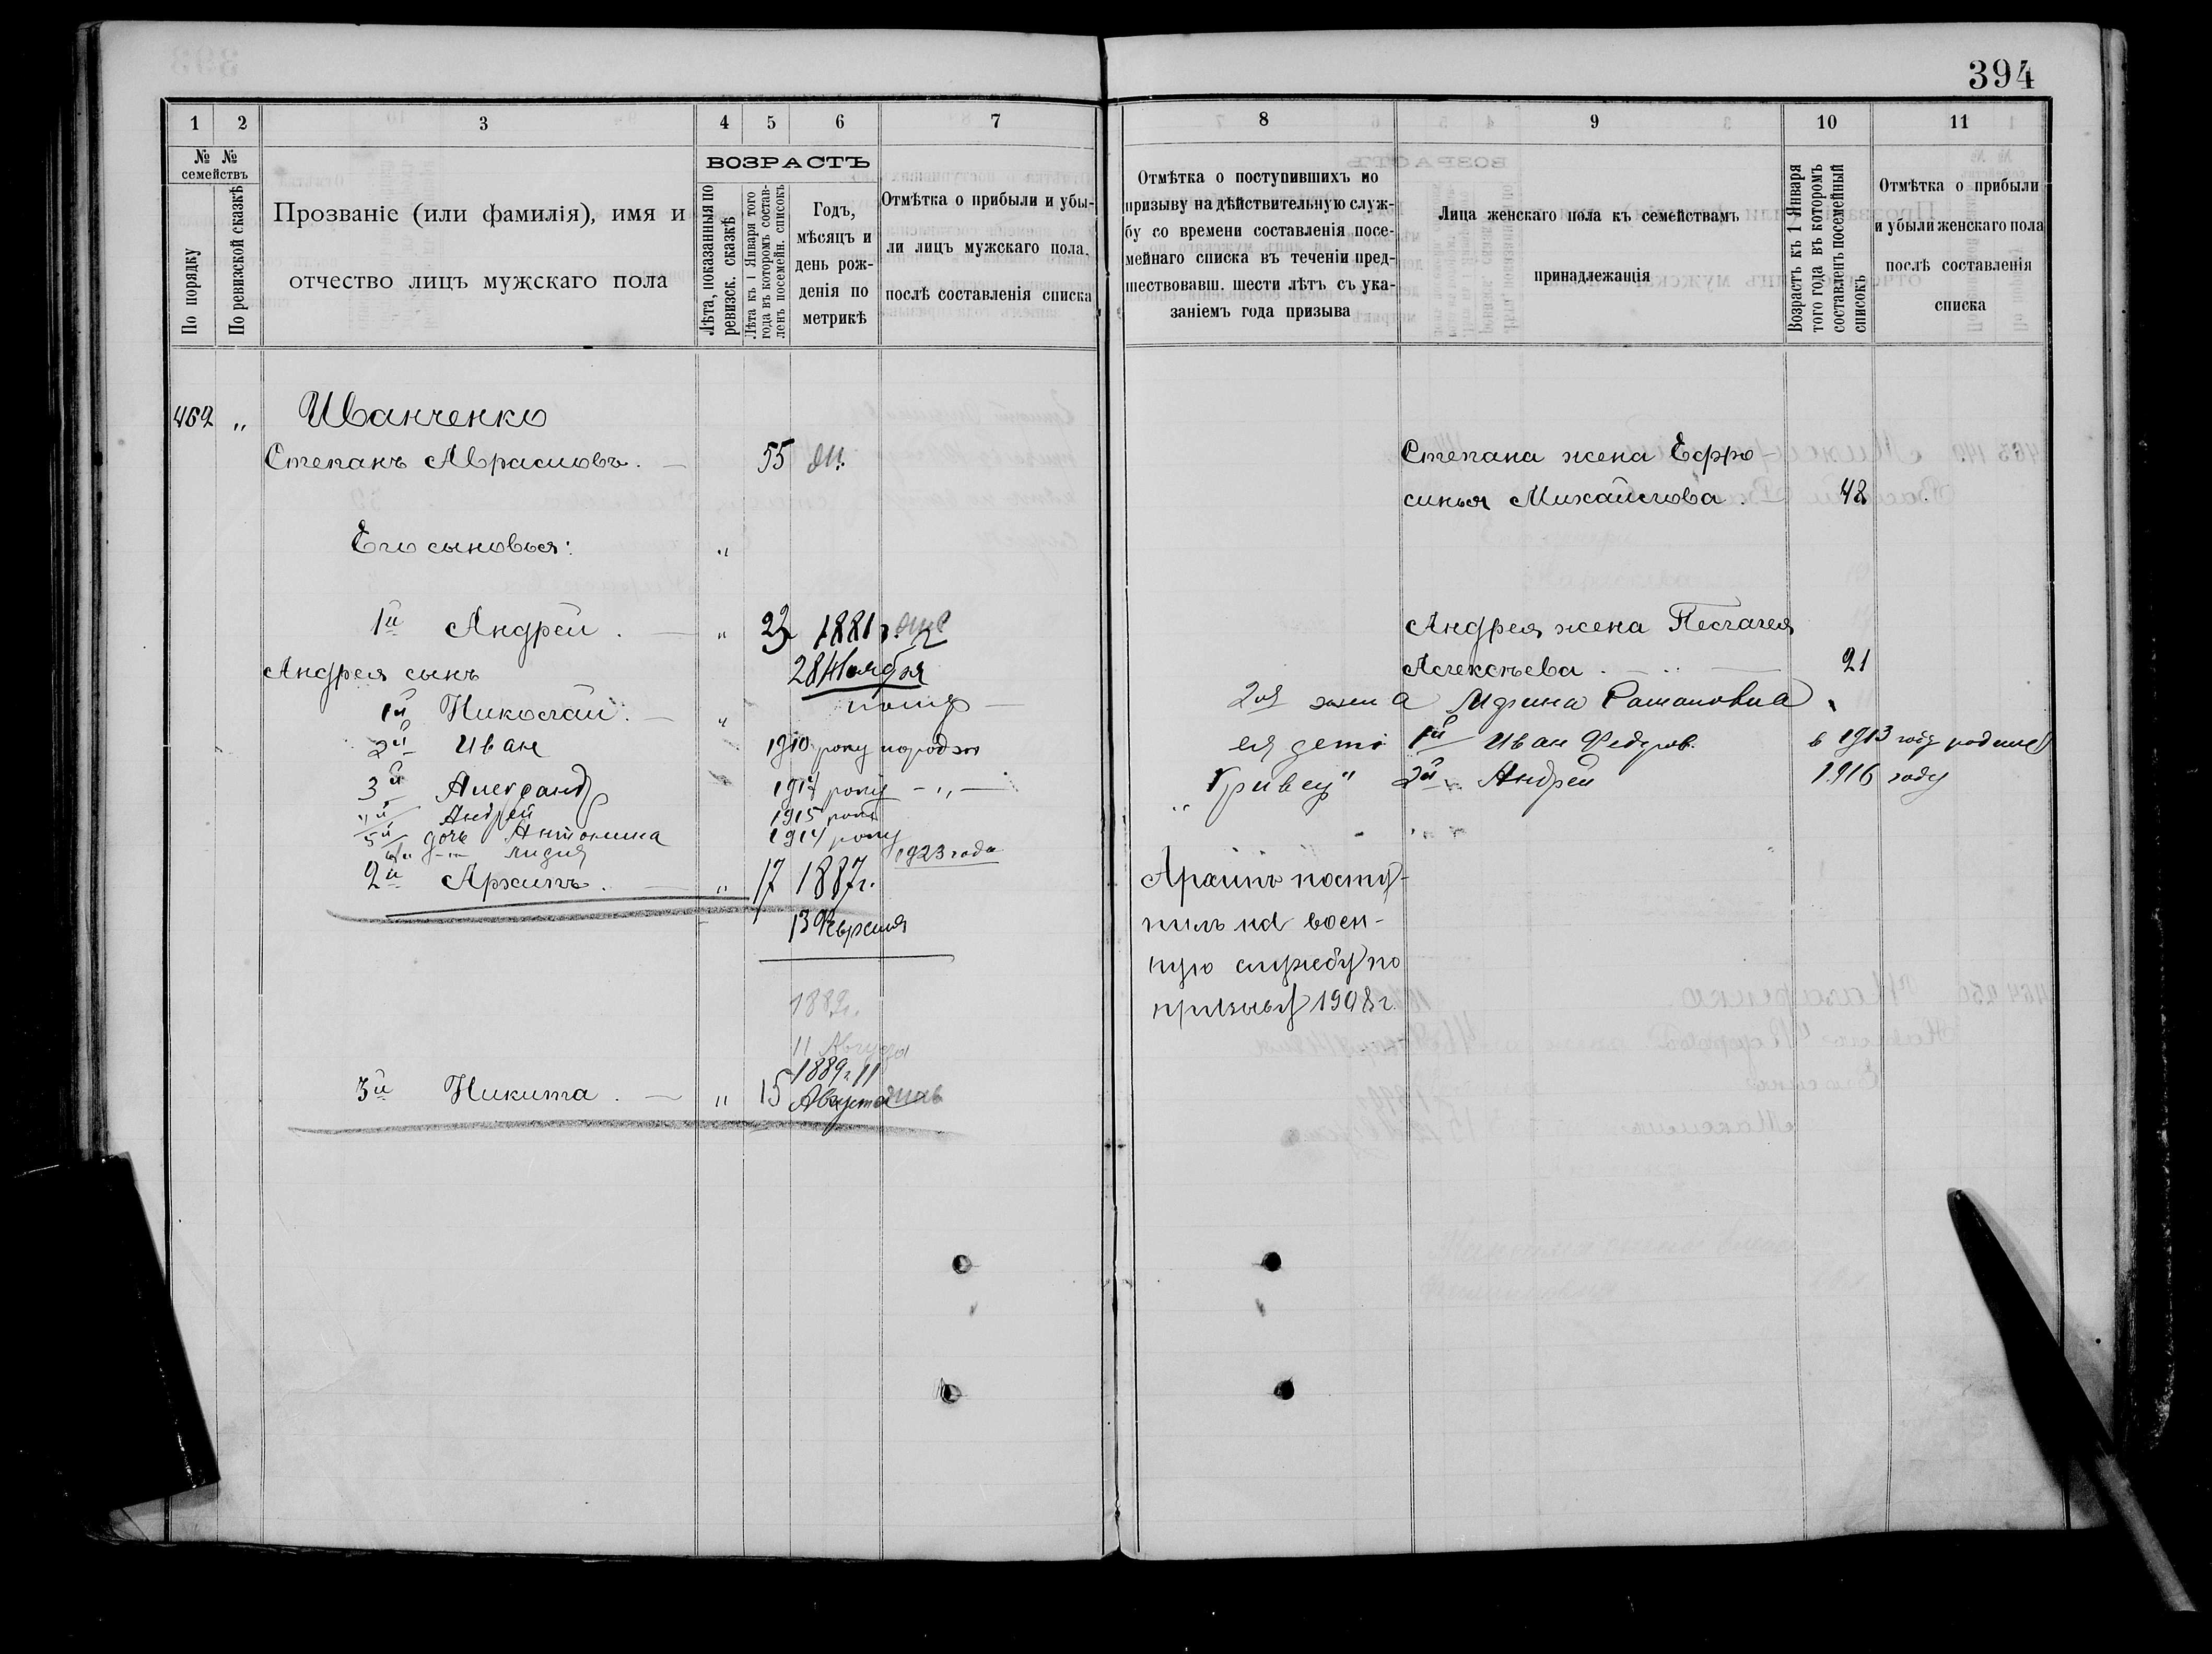 394
1 2 3 4 5 6 7
№ № семействъ
По порядку
По ревизской сказкѣ
Прозваніе (или фамилія), имя и
отчество лицъ мужскаго пола
ВОЗРАСТЪ
Лѣта, показанныя по
ревизск. сказкѣ
Лѣта къ 1 Января того
года въ которомъ состав-
ленъ посемейн. списокъ
Годъ,
мѣсяцъ и
день рож-
денія по
метрикѣ
Отмѣтка о прибыли и убы-
ли лицъ мужскаго пола,
послѣ составленія списка
462 „ Иванченко
Степанъ Аврамовъ. — 55
Его сыновья: „
1й Андрей. — „ 23 1881 г.
28 Ноября
Андрея сынъ
1й Николай. — „
2й Иван 1910 року народж
3й Александр 1917 року — „ —
4й Андрей 1915 року
5й дочь Антонина 1914 року
Лидия 1923 года
2й Архипъ. — „ 17 1887 г.
13 Февраля
1889 г.
11 Августа
1889 г. 11
3й Никита. — „ 15 Августа
8 9 10 11
Отмѣтка о поступившихъ по
призыву на дѣйствительную служ-
бу со времени составленія посе-
мейнаго списка въ теченіи пред-
шествовавш. шести лѣтъ съ ука-
заніемъ года призыва
Лица женскаго пола къ семействамъ
принадлежащія
Возрастъ къ 1 Января
того года въ которомъ
составленъ посемейный
списокъ
Отмѣтка о прибыли
и убыли женскаго пола
послѣ составленія
списка
Степана жена Ефро-
синья Михайлова. 48
Андрея жена Пелагея
Алексѣева. — 21
2я жена Ирина Романовна
ея дети 1й Иван Федоров. в 1913 году родився
„Гривец" 2й Андрей 1916 году
Архипъ посту-
пилъ на воен-
ную службу по
призыву 1908 г.